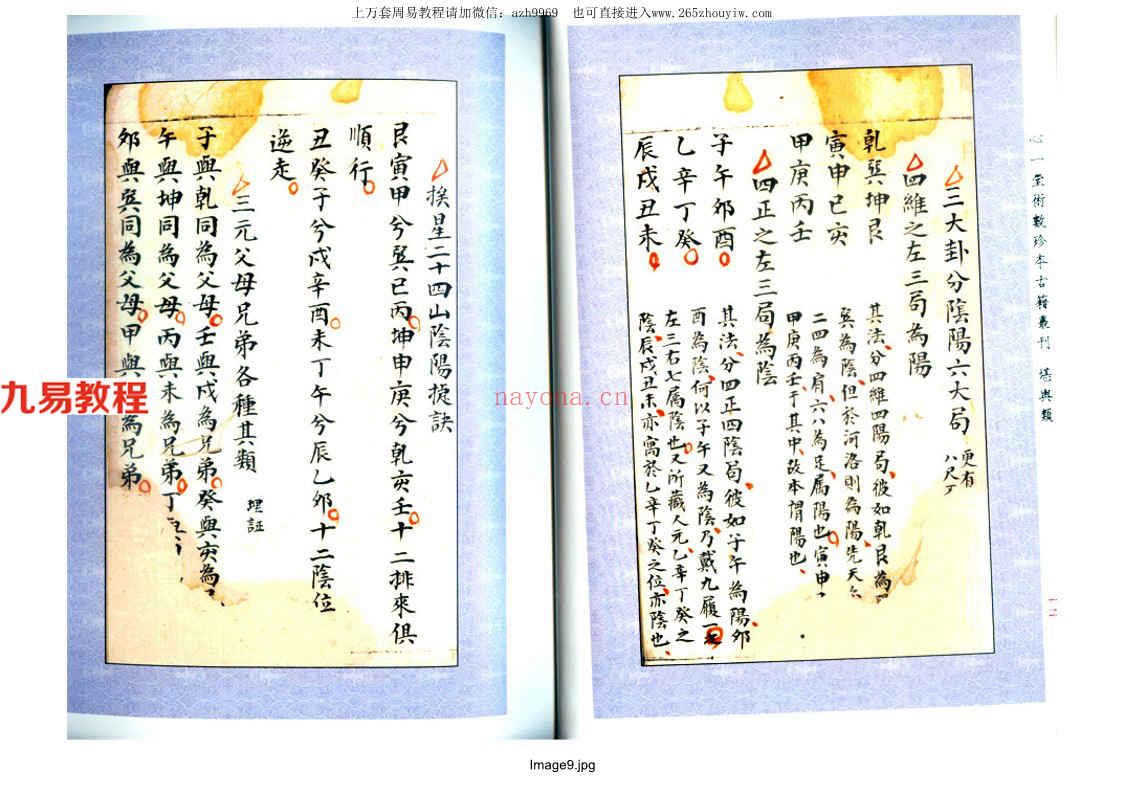 上万套周易教程请加微信：azh9969　也可直接进入www.265zhouyiw.com
心一堂術數珍本古籍叢刊　堪輿類
三大卦分陰陽六大局 更有
八尺
四維之左三局為陽
乾巽坤艮
寅申巳亥
甲庚丙壬
其法、分四維四陽局、彼如乾艮為
巽為陰、但於河洛則為陽、先天
二四為肩、六八為足、屬陽也、寅申
甲庚丙壬、于其中、故本謂陽也、
四正之左三局為陰
子午卯酉
乙辛丁癸
辰戌丑未
其法、分四正四陰局、彼如子午為陽、卯
酉為陰、何以子午又為陰、乃戴九履一
左三右七屬陰也、又所藏人元、乙辛丁癸之
陰、辰戌丑未、亦寓於乙辛丁癸之位、亦陰也、
一二
挨星二十四山陰陽捷訣
艮寅甲兮巽巳丙坤申庚兮乾亥壬十二排來俱
順行
丑癸子兮戌辛酉未丁午兮辰乙卯十二陰位
逆走
三元父母兄弟各種其類 理証
子與乾同為父母壬與戌為兄弟癸與亥為
午與坤同為父母丙與未為兄弟丁
卯與巽同為父母甲與 為兄弟
九易教程
nayona.cn
Image9.jpg